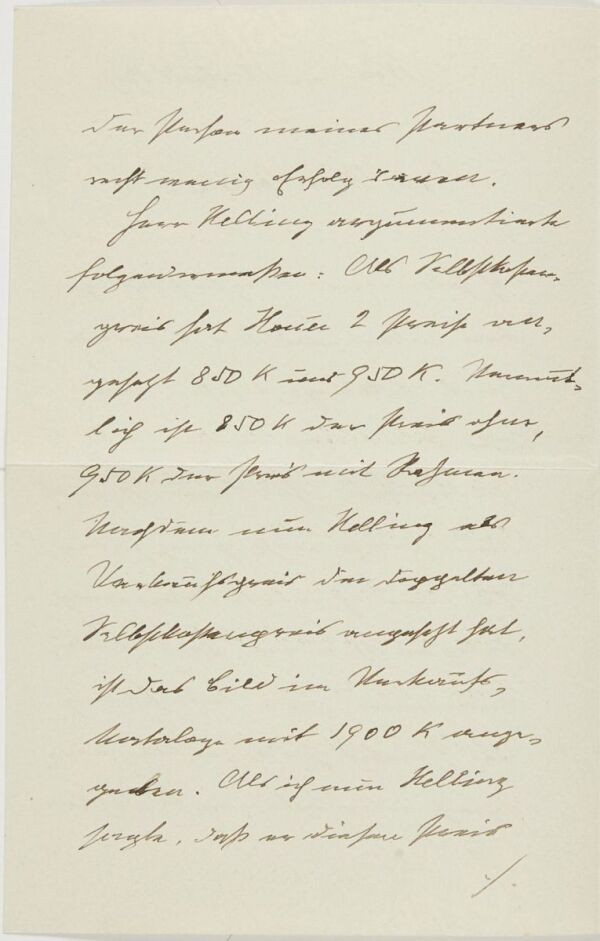 der Person meines Partners
recht wenig Erfolg daran.
Herr Helling argumentierte
folgendermaßen: Als Selbstkosten-
preis hat Hauer 2 Preise an-
gesetzt 850 K und 950 K. Vermut-
lich ist 850 K der Preis ohne,
950 K der Preis mit Rahmen.
Nachdem nun Helling als
Verkaufspreis den doppelten
Selbstkostenpreis angesetzt hat,
ist das Bild im Verkaufs-
kataloge mit 1900 K ange-
geben. Als ich nun Helling
sagte, daß er diesen Preis
./.